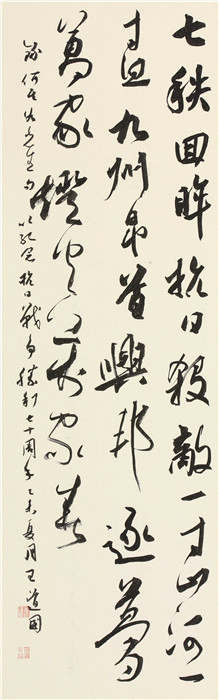 七秩回眸抗日殺敵一寸山河一
寸血九州昂首興邦逐夢
萬家燈火萬家春
錄何先生句以紀念抗日戰爭勝利七十周年乙未夏月王道國